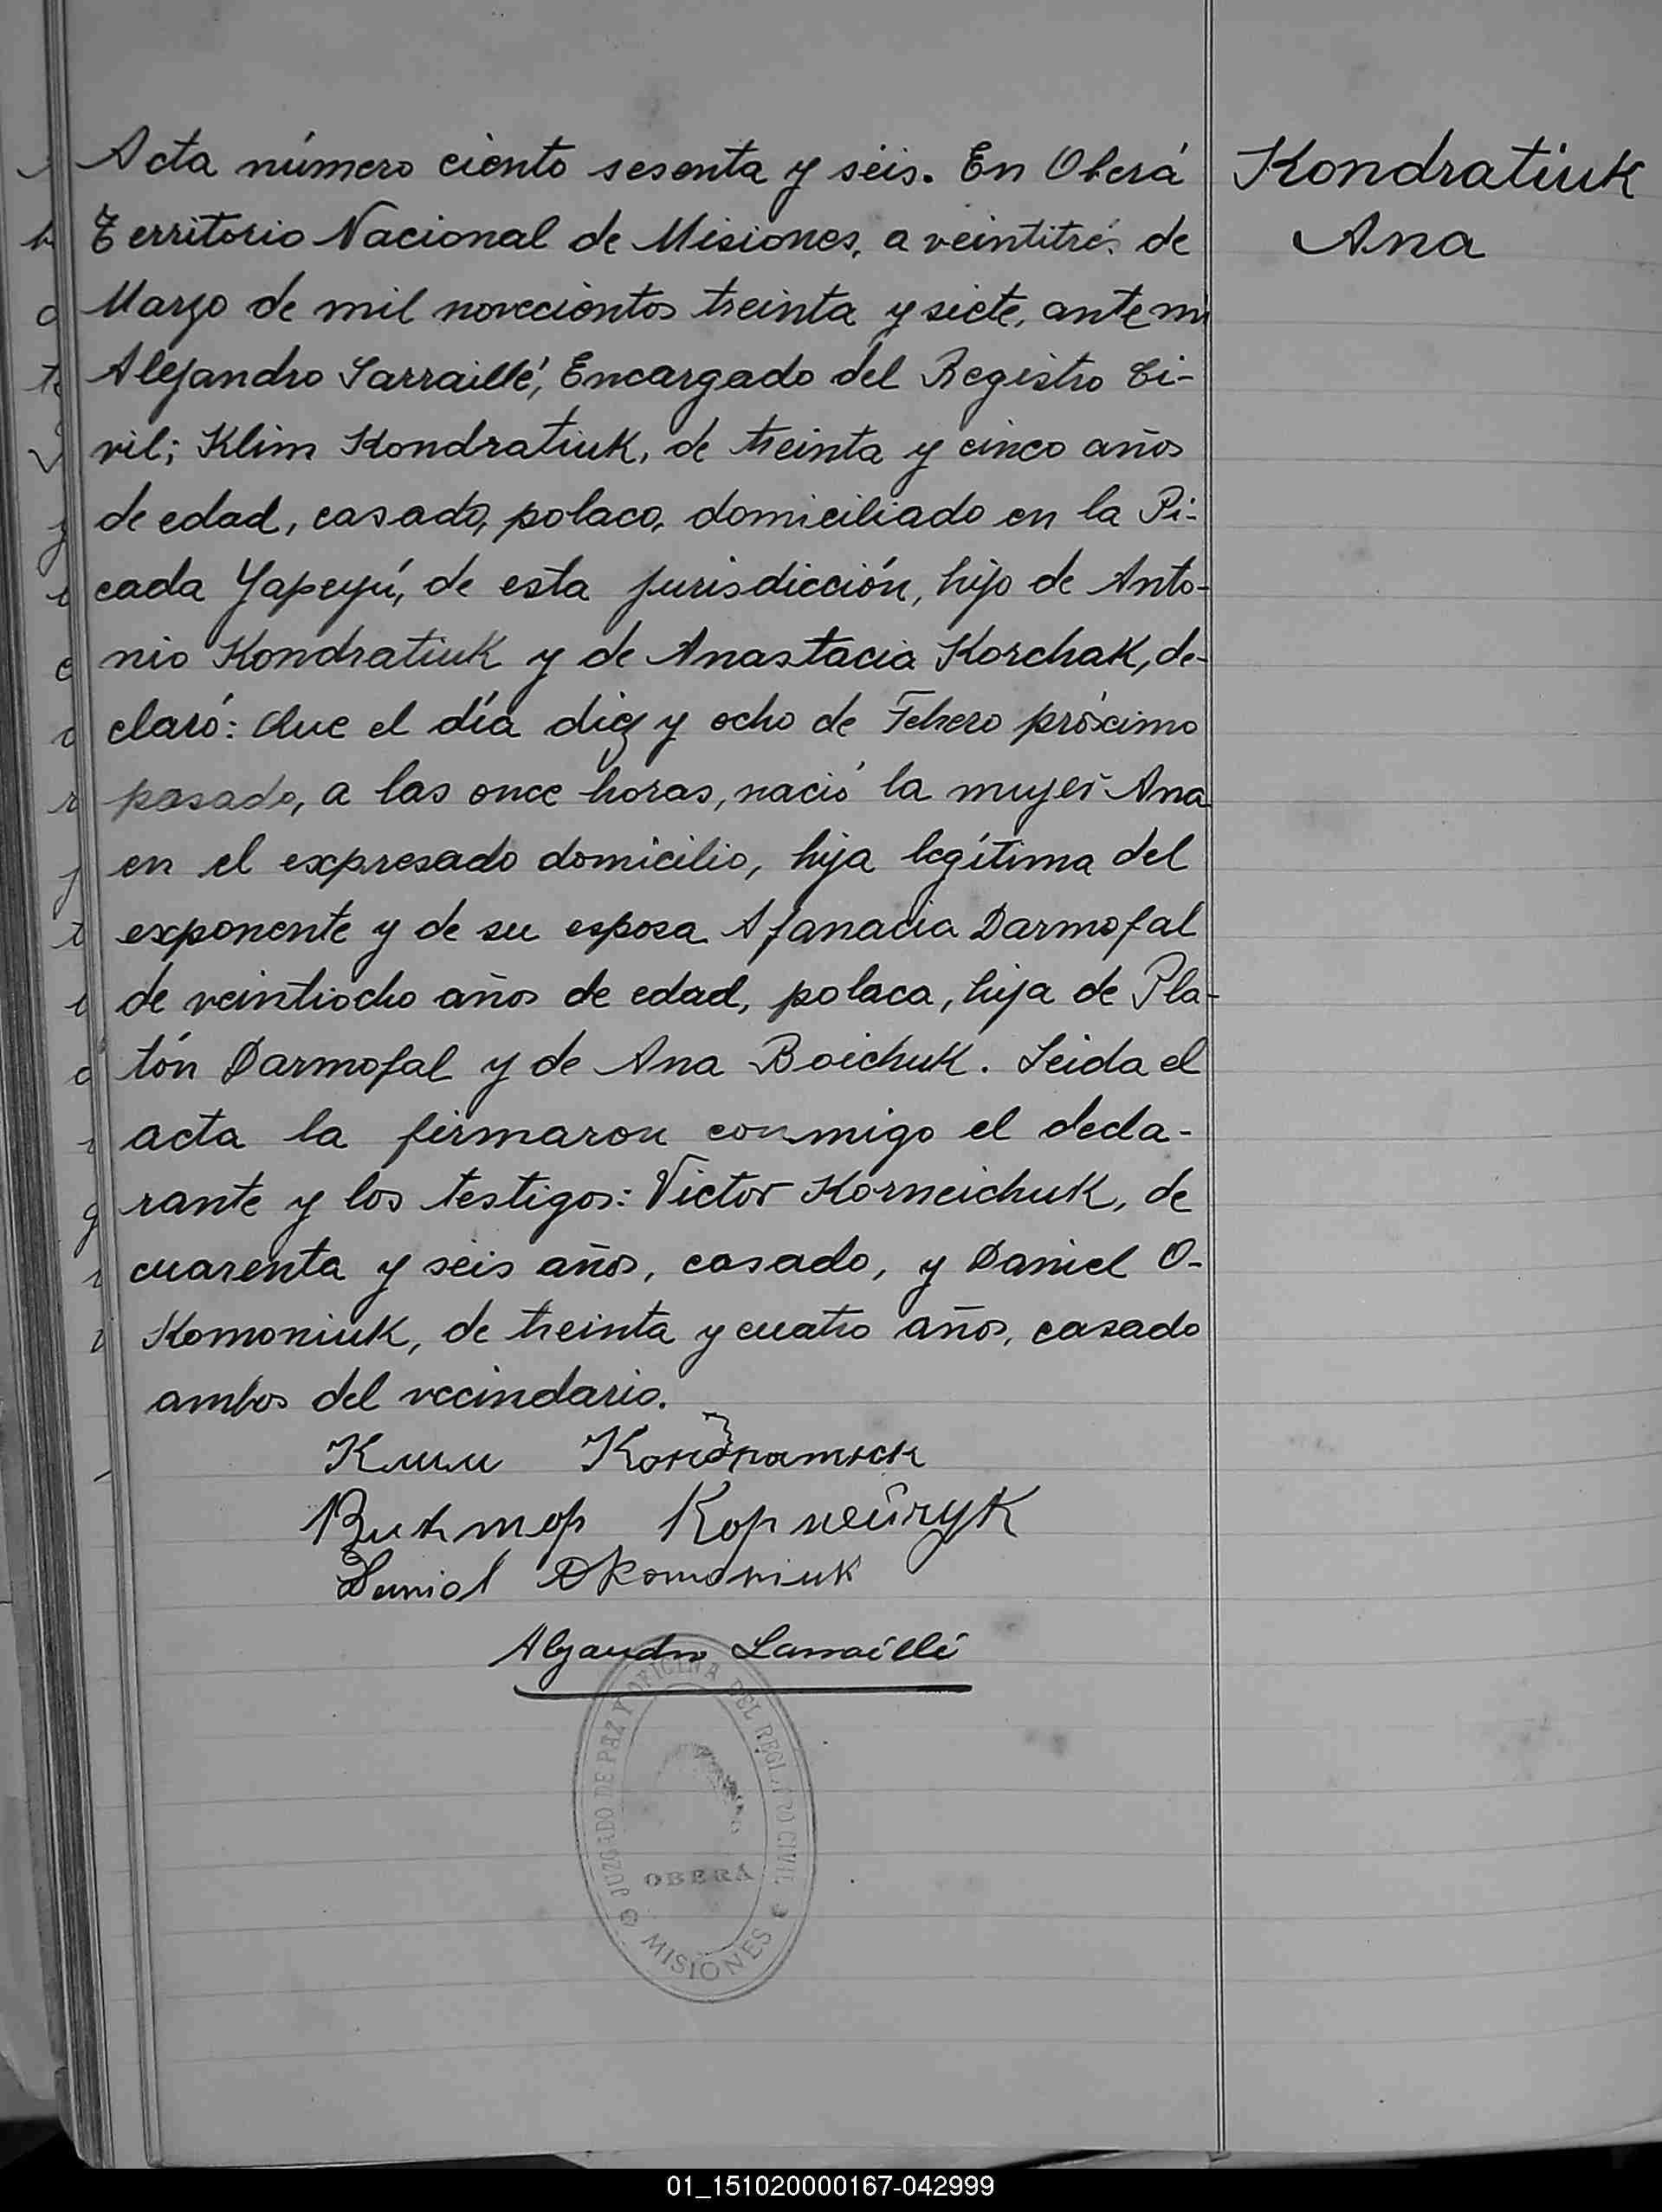 Acta número ciento sesenta y séis. En Oberá
Territorio Nacional de Misiones, a veintitrés de
Marzo de mil novecientos treinta y siete, ante mi
Alejandro Larraillé, Encargado del Registro Ci-
vil; Klim Kondratiuk, de treinta y cinco años
de edad, casado, polaco, domiciliado en la Pi-
cada Yapeyú, de esta jurisdicción, hijo de Anto-
nio Kondratiuk y de Anastacia Korchak, de-
claró: Que el día diez y ocho de Febrero próximo
pasado, a las once horas, nació la mujer Ana
en el expresado domicilio, hija legítima del
exponente y de su esposa Afanacia Darmofal
de veintiocho años de edad, polaca, hija de Pla-
tón Darmofal y de Ana Boichuk. Leida el
acta la firmaron conmigo el decla-
rante y los testigos: Victor Korneichuk, de
cuarenta y seis años, casado, y Daniel O-
Komoniuk, de treinta y cuatro años, casado
ambos del vecindario.
Клим Кондратюк
Виктор Корнейчук
Daniel Okomoniuk
Alejandro Larraillé
JUZGADO DE PAZ Y OFICINA DEL REGISTRO CIVIL
OBERÁ
MISIONES
Kondratiuk
Ana
01_151020000167-042999